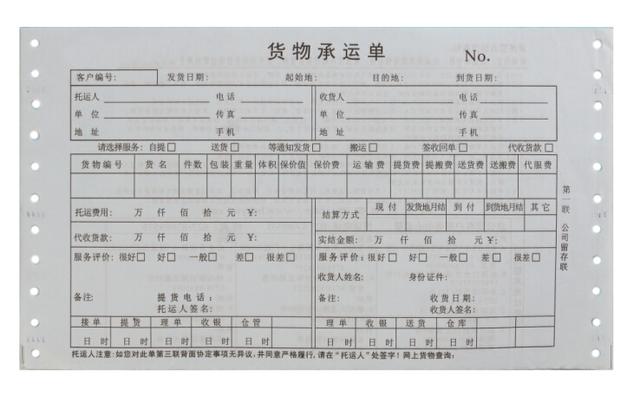 货物承运单 No.
客户编号: 发货日期: 起始地: 目的地: 到货日期:
托运人 电话 收货人 电话
单位 传真 单位 传真
地址 手机 地址 手机
请选择服务: 自提□ 送货□ 等通知发货□ 搬运□ 签收回单□ 代收货款□
货物编号 货名 件数 包装 重量 体积 保价值 保价费 运输费 提货费 提搬费 送货费 送搬费 代服费
托运费用: 万 仟 佰 拾 元 ¥: 结算方式 现付 发货地月结 到付 到货地月结 其它
代收货款: 万 仟 佰 拾 元 ¥: 实结金额: 万 仟 佰 拾 元 ¥:
服务评价: 很好□ 好□ 一般□ 差□ 很差□ 服务评价: 很好□ 好□ 一般□ 差□ 很差□
收货人姓名: 身份证件:
备注: 提货电话: 备注: 收货日期:
托运人签名: 收货人签名:
接单 提货 理单 收银 仓管 理单 收银 送货 仓库
日 时 日 时 日 时 日 时 日 时 日 时 日 时 日 时 日 时
托运人注意:如您对此单第三联背面协定事项无异议,并同意严格履行,请在“托运人”处签字!网上货物查询:
第一联 公司留存联